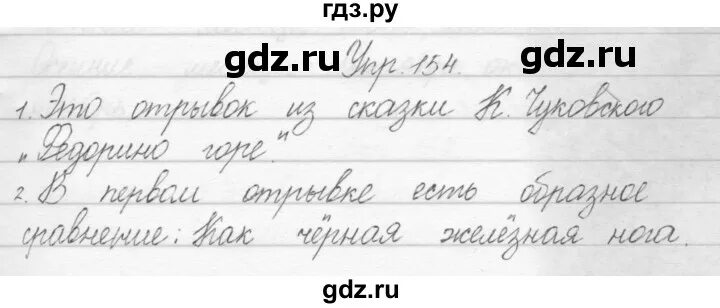 гдз.ру
gdz.ru gdz.ru
Упр. 154.
1. Это отрывок из сказки К. Чуковского
„Федорино горе."
2. В первом отрывке есть образное
сравнение: Как чёрная железная нога.
gdz.ru gdz.ru